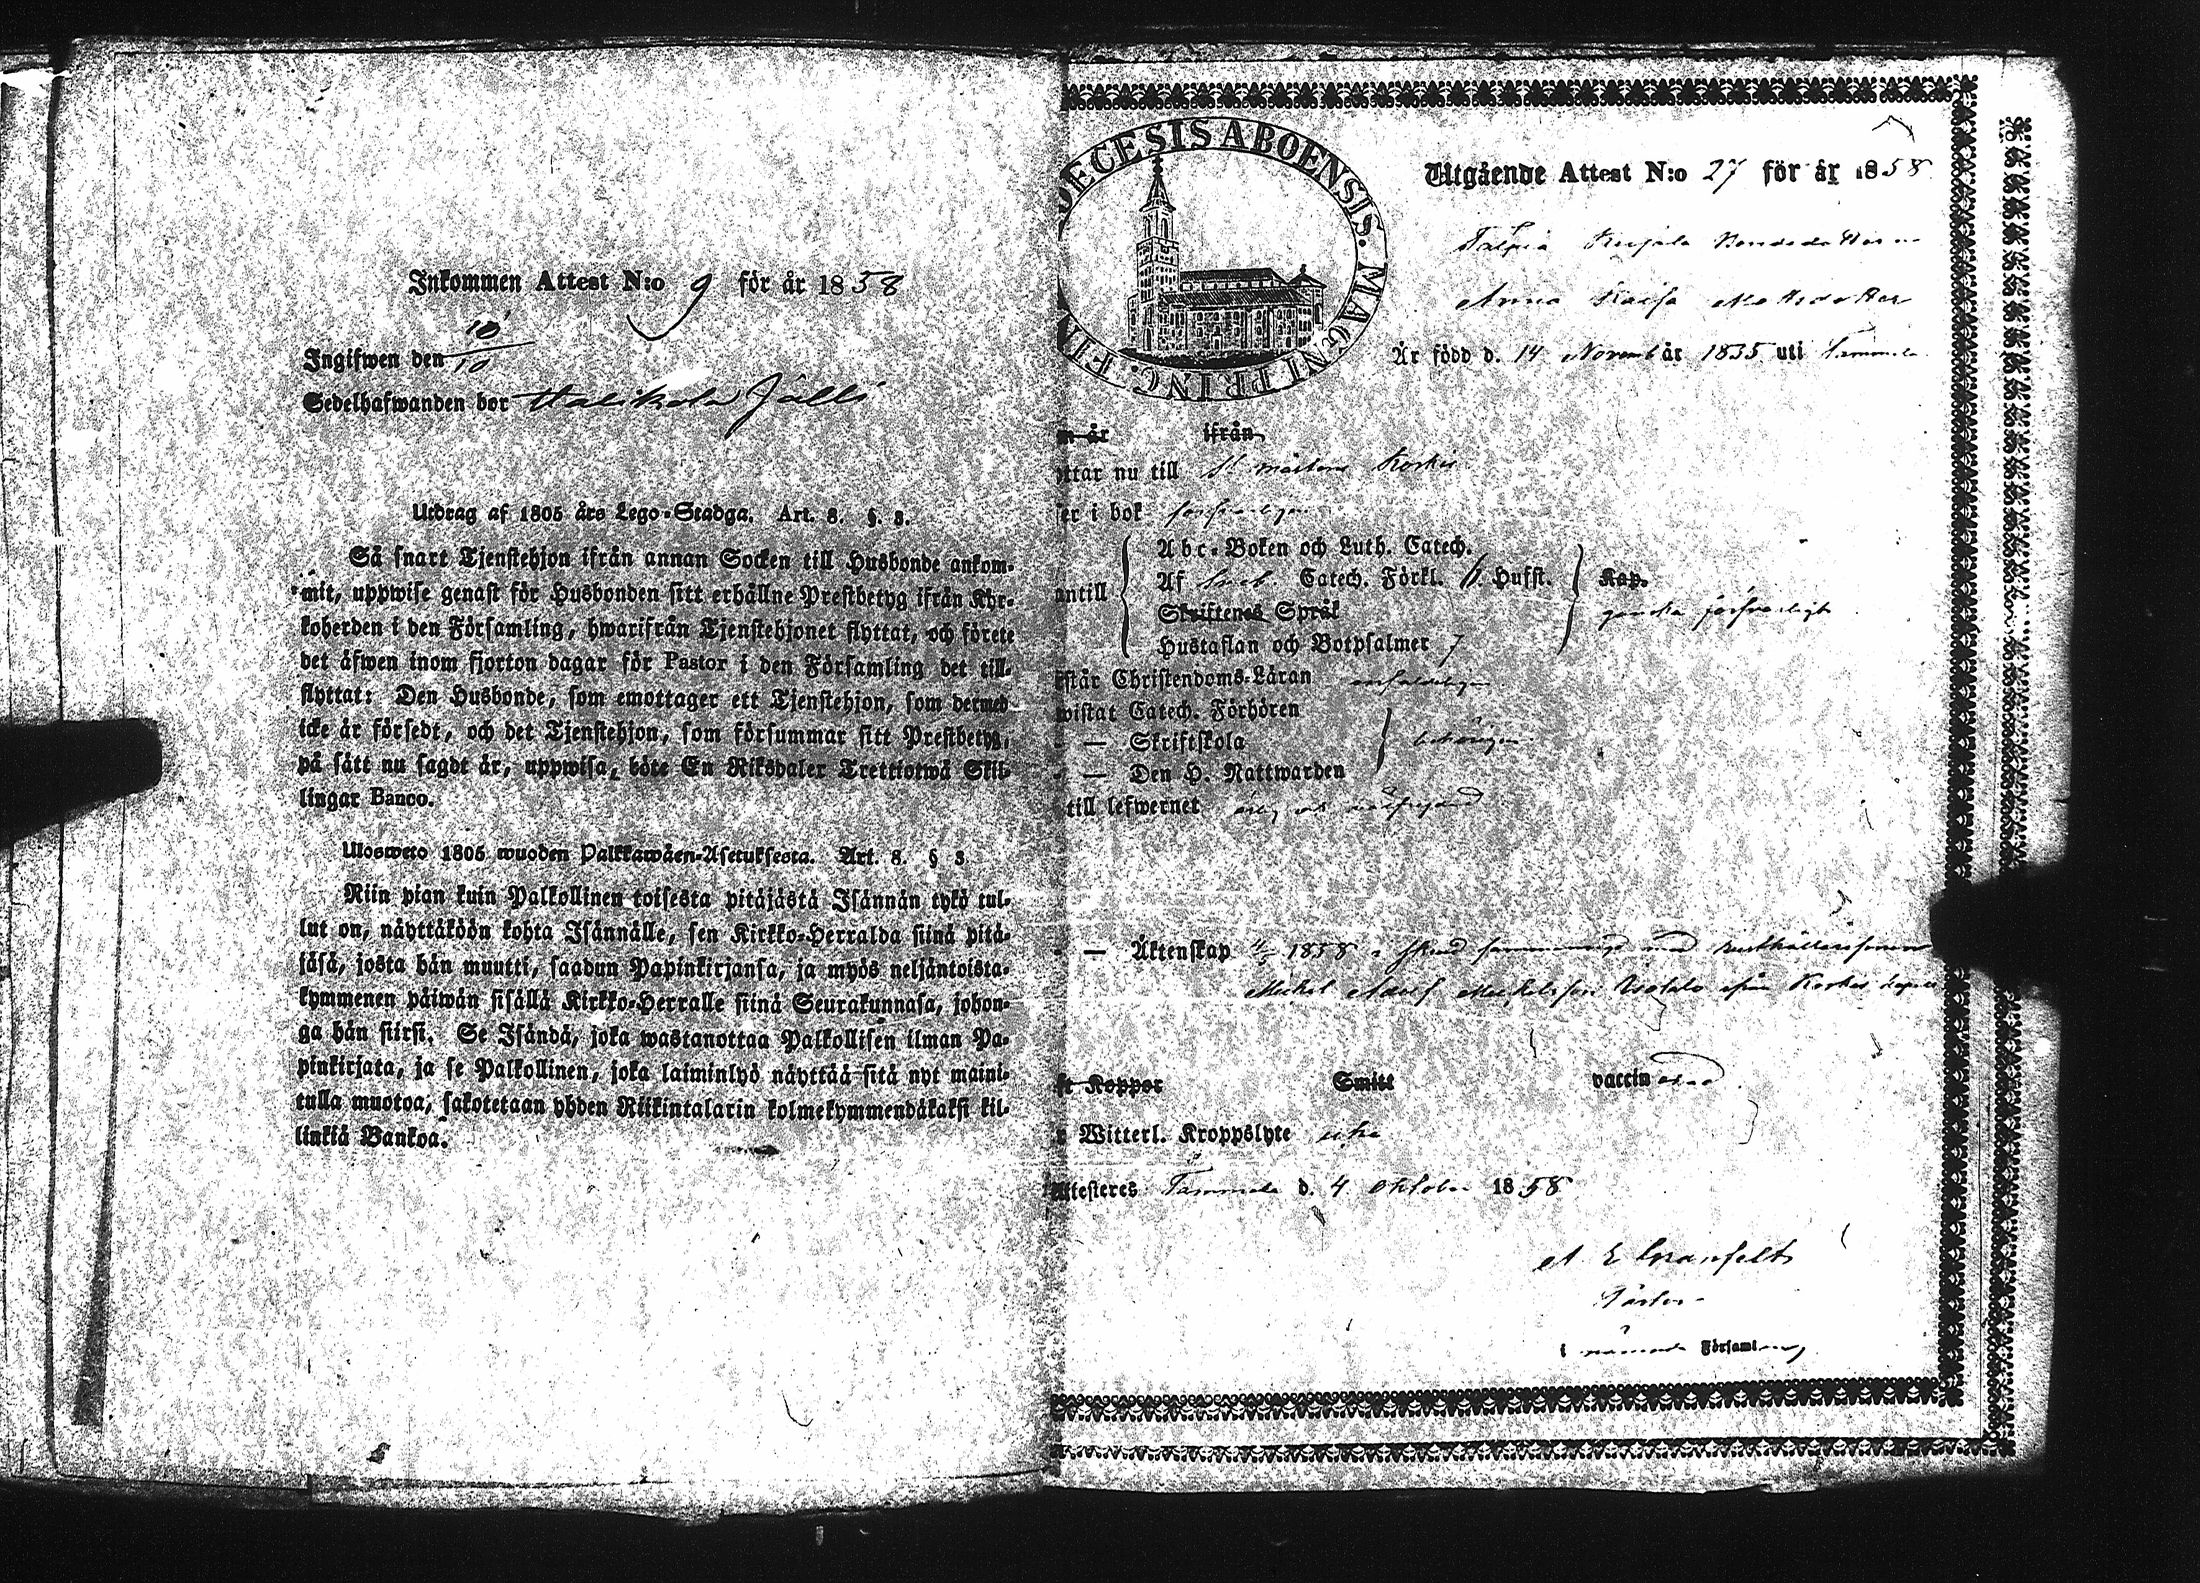 Inkommen Attest N:o 9 för år 1858
Ingifwen den 10/10
Sedelhafwanden bor Halikola Jälli
Utdrag af 1805 års Lego-Stadga. Art. 8. §. 3.
Så snart Tjenstehjon ifrån annan Socken till Husbonde ankom-
mit, uppwise genast för Husbonden sitt erhållne Prestbetyg ifrån Kyr-
koherden i den Församling, hwarifrån Tjenstehjonet flyttat, och förete
det äfwen inom fjorton dagar för Pastor i den Församling det till-
flyttat: Den Husbonde, som emottager ett Tjenstehjon, som dermed
icke är försedt, och det Tjenstehjon, som försummar sitt Prestbetyg,
på sätt nu sagdt är, uppwisa, böte En Riksdaler Trettiotwå Skil-
lingar Banco.
Ulosweto 1805 wuoden Palkkawäen-Asetuksesta. Art. 8. § 3
Niin pian kuin Palkollinen toisesta pitäjästä Isännän tykö tul-
lut on, näyttäköön kohta Isännälle, sen Kirkko-Herralda siinä pitä-
jäsä, josta hän muutti, saadun Papinkirjansa, ja myös neljäntoista-
kymmenen päiwän sisällä Kirkko-Herralle siinä Seurakunnasa, johon-
ga hän siirsi. Se Isändä, joka wastanottaa Palkollisen ilman Pa-
pinkirjata, ja se Palkollinen, joka laiminlyö näyttää sitä nyt maini-
tulla muotoa, sakotetaan yhden Riikintalarin kolmekymmendäkaksi kil-
linkiä Bankoa.
DECESIS ABOENSIS. MAGNI PRINC. FIN
Utgående Attest N:o 27 för år 1858
Kujala Bondedotter
Anna Kaisa Mattsdotter
Är född d. 14 Novemb år 1835 uti Tammela
n år ifrån
yttar nu till St Mårtens Koskis
er i bok försvarligen
Abc-Boken och Luth. Catech.
antill Af Sveb. Catech. Förkl. Hufst. Kap.
Skriftenes Språk ganska försvarligt
Hustaflan och Botpsalmer 7
står Christendoms-Läran enfaldeligen
wistat Catech. Förhören
— Skriftskola behörigen
— Den H. Nattwarden
till lefwernet ärlig och
— Äktenskap 1858 med
Michel Michelsson ifrån Koskis
Koppor Smitt vaccinerad
Witterl. Kroppslyte icke
Attesteres Tammela d. 4 Oktober 1858
A E Granfelt
Pastor
i nämnde Församling